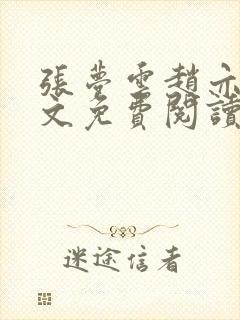 張夢雲趙亦
文免費閱讀
迷途信者